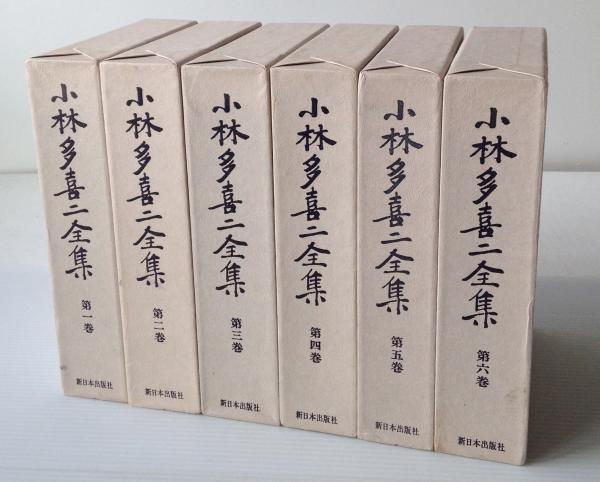 小林多喜二全集
第一巻
新日本出版社
小林多喜二全集
第二巻
新日本出版社
小林多喜二全集
第三巻
新日本出版社
小林多喜二全集
第四巻
新日本出版社
小林多喜二全集
第五巻
新日本出版社
小林多喜二全集
第六巻
新日本出版社